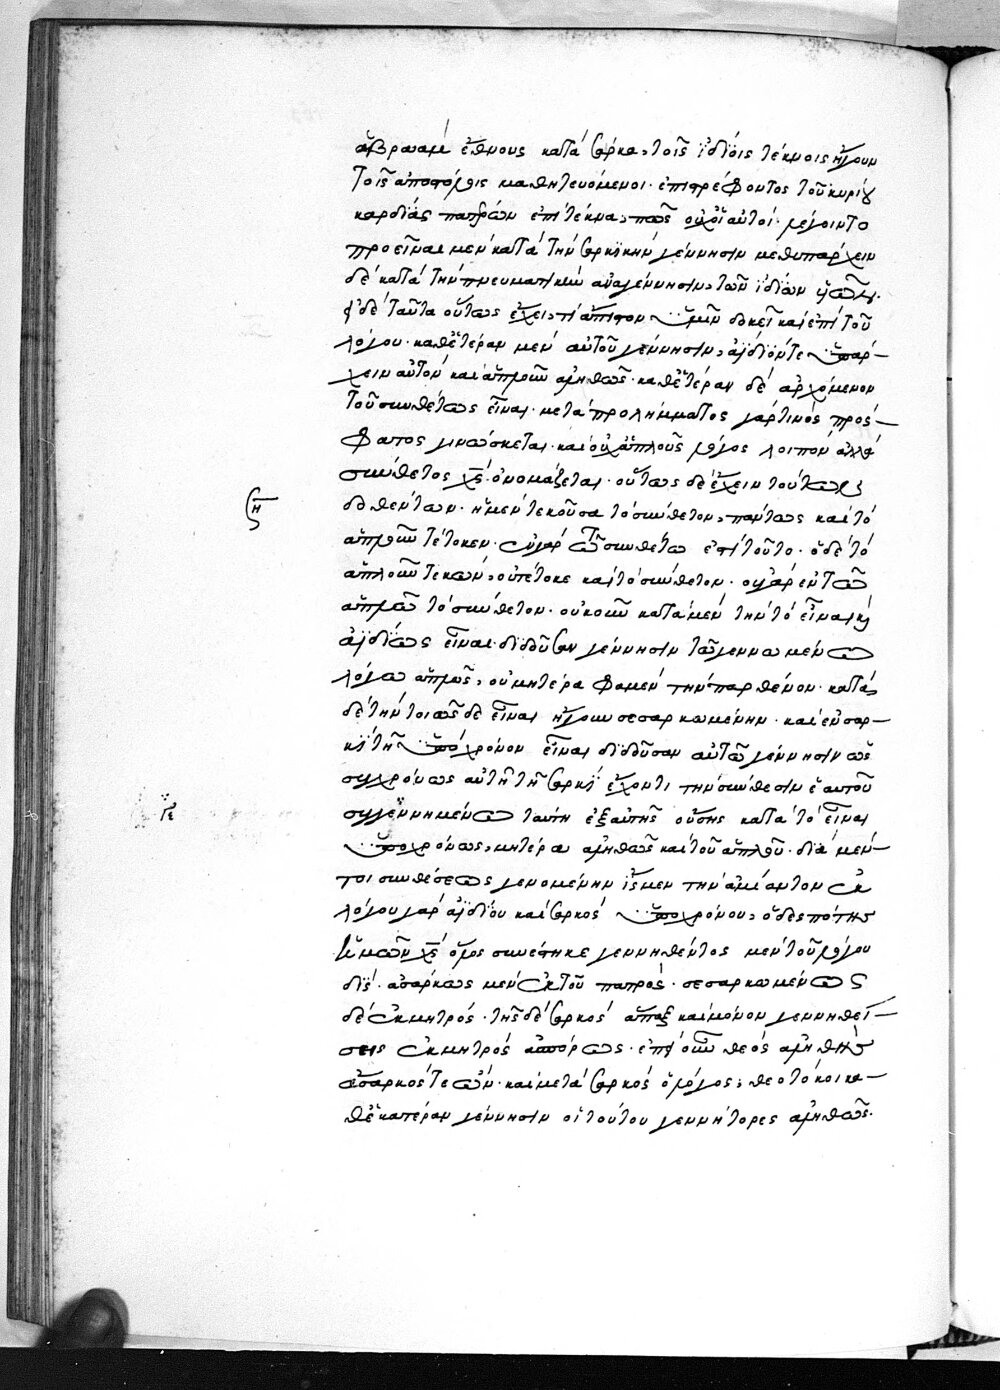 ἀβραὰμ ἔθνους κατὰ σάρκα, τοῖς ἰδίοις τέκνοις ἤγουν
τοῖς ἀποστόλοις μαθητευόμενοι. ἐπιστρέφοντος τοῦ κυρίου
καρδίας πατέρων ἐπὶ τέκνα, πῶς οὐχ οἱ αὐτοὶ λέγοιντο
προεῖναι μὲν κατὰ τὴν σαρκικὴν γέννησιν μεθυπάρχειν
δὲ κατὰ τὴν πνευματικὴν ἀναγέννησιν, τῶν ἰδίων
εἰ δὲ ταῦτα οὕτως ἔχει, τί ἄπιστον ὑμῖν δοκεῖ καὶ ἐπὶ τοῦ
λόγου. καθ' ἑτέραν μὲν αὐτοῦ γέννησιν, ἀΐδιόν τε ὑπάρ-
χειν αὐτὸν καὶ ἁπλοῦν ἀληθῶς. καθ' ἑτέραν δὲ ἀρχόμενον
τοῦ συνθέτως εἶναι. μετὰ προσλήμματος γὰρ τινὸς πρόσ-
φατος γινώσκεται. καὶ οὐχ ἁπλοῦς λόγος λοιπὸν ἀλλὰ
σύνθετος χς ὀνομάζεται. οὕτως δὲ ἔχειν τούτων
δοθέντων. ἡ μέν τεκοῦσα τὸ σύνθετον, πάντως καὶ τὸ
ἁπλοῦν τέτοκεν. ἦν γὰρ ἐν τῶ συνθέτω ἐπὶ τοῦτο. ὁ δὲ τὸ
ἁπλοῦν τεκὼν, οὐ τέτοκε καὶ τὸ σύνθετον. οὐ γὰρ ἐν τῶ
ἁπλῶ τὸ σύνθετον. οὐκοῦν κατὰ μὲν τὴν τὸ εἶναι καὶ
ἀϊδίως εἶναι διδοῦσαν γέννησιν τῶ γεννωμένω
λόγω ἁπλῶς, οὐ μητέρα φαμὲν τὴν παρθένον. κατὰ
δὲ τὴν τοιῶσδε εἶναι ἤγουν σεσαρκωμένην. καὶ ἐν σαρ-
κὶ τῆ ὑπὸ χρόνον εἶναι διδοῦσαν αὐτῶ γέννησιν ὡς
συγχρόνως αὐτῆ τῆ σαρκὶ ἔχοντι τὴν σύνθεσιν ἑαυτοῦ
συγγεννημένω ταύτη ἐξ αὐτῆς οὔσης κατὰ τὸ εἶναι
ὑποχρόνως, μητέρα ἀληθῶς καὶ τοῦ ἁπλοῦ. διὰ μέν-
τοι συνθέσεως γενομένην ἴσμεν τὴν ἀμίαντον ἐκ
λόγου γὰρ ἀϊδίου καὶ σαρκὸς ὑποχρόνου, ὁ δεσπότης
ἡμῶν χς ὅλος συνέστηκε γεννηθέντος μὲν τοῦ λόγου
δίς. ἀσάρκως μὲν ἐκ τοῦ πατρός. σεσαρκωμένως
δὲ ἐκ μητρός. τῆς δὲ σαρκὸς ἅπαξ καὶ μόνον γεννηθεί-
σης ἐκ μητρὸς ἀσπόρως. ἐπεὶ οὖν θεὸς ἀληθὴς
ἄσαρκός τε ὢν. καὶ μετὰ σαρκὸς ὁ λόγος, θεοτόκοι κα-
θ' ἑκατέραν γέννησιν οἱ τούτου γεννήτορες ἀληθῶς.